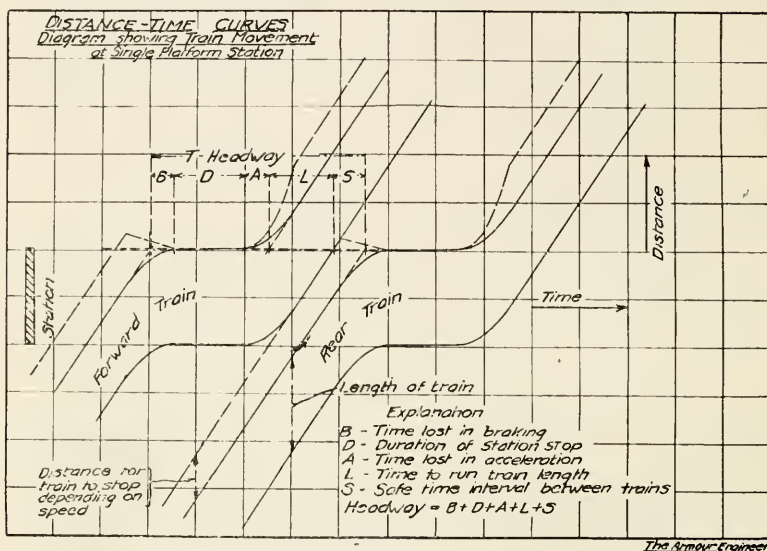 DISTANCE-TIME CURVES
Diagram showing Train Movement
at Single Platform Station
T-Headway
B D A L S
Distance
Time
Station
Forward Train
Rear Train
Length of train
Explanation
B - Time lost in braking
D - Duration of Station stop
A - Time lost in acceleration
L - Time to run train length
S - Safe time interval between trains
Headway = B+D+A+L+S
Distance for
train to stop
depending on
speed
The Armour Engineer